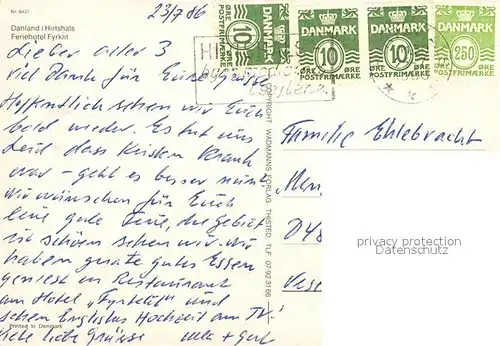 Nr. 8427
Danland i Hirtshals
Feriehotel Fyrklit
23/7 86
Lieber aller 3
viel Dank für Eure Grüsse
Hoffentlich sehen wir Euch
bald wieder. Es tut uns
Leid dass Kirsten Krank
war – geht es besser nun?
Wir wünschen für Euch
eine gute Ferie, die Gebiet
ist schön sehen wir. Wir
haben gute gutes Essen
geniest im Restaurant
am Hotel „Fyrklit“ und
sehen Englishs Hochzeit am TV.
Viele liebe Grüsse
Printed in Denmark
COPYRIGHT WADMANNS FORLAG THISTED. TLF. 07-92 31 66
DANMARK
10
ØRE ØRE
POSTFRIMÆRKE
DANMARK
10
ØRE ØRE
POSTFRIMÆRKE
DANMARK
10
ØRE ØRE
POSTFRIMÆRKE
DANMARK
250
ØRE ØRE
POSTFRIMÆRKE
Familie Ehlebracht
privacy protection
Datenschutz